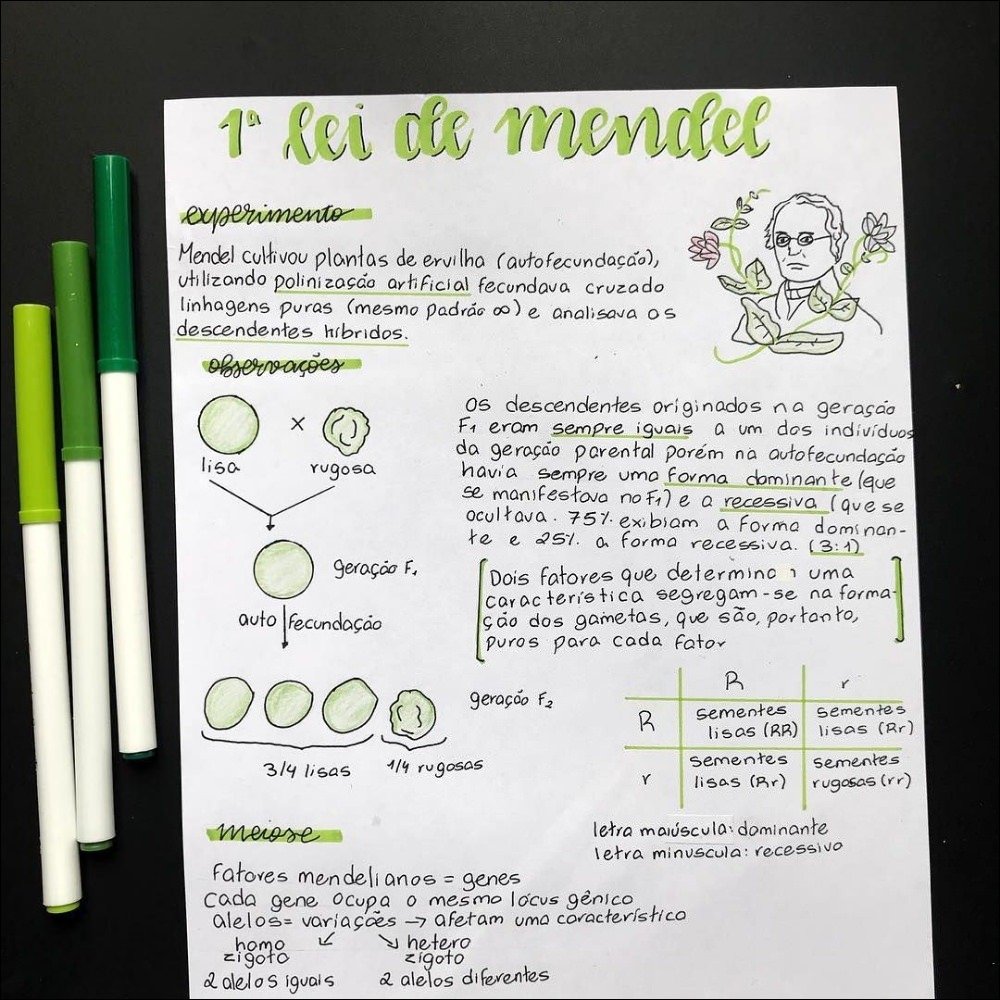 1ª lei de mendel
experimento
Mendel cultivou plantas de ervilha (autofecundação),
utilizando polinização artificial fecundava cruzado
linhagens puras (mesmo padrão ∞) e analisava os
descendentes híbridos.
observações
lisa
x
rugosa
geração F₁
auto fecundação
geração F₂
3/4 lisas
1/4 rugosas
Os descendentes originados na geração
F₁ eram sempre iguais a um dos indivíduos
da geração parental porém na autofecundação
havia sempre uma forma dominante (que
se manifestava no F₁) e a recessiva (que se
ocultava. 75% exibiam a forma dominan-
te e 25% a forma recessiva. (3:1)
Dois fatores que determina uma
característica segregam-se na forma-
ção dos gametas, que são, portanto,
puros para cada fator
R r
R sementes lisas (RR) sementes lisas (Rr)
r sementes lisas (Rr) sementes rugosas (rr)
letra maiúscula: dominante
letra minuscula: recessivo
meiose
Fatores mendelianos = genes
Cada gene ocupa o mesmo lócus gênico
alelos = variações → afetam uma característico
homo zigoto
2 alelos iguais
hetero zigoto
2 alelos diferentes